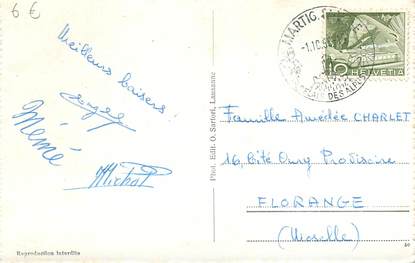 6 €
MARTIG
-1.10.5
DES ALPES
10 HELVETIA
Meilleurs baisers
Mémé
Michel
Phot. Edit. O. Sartori, Lausanne
Famille Amédée CHARLET
16, Cité Ouvy Provisoire
FLORANGE
(Moselle)
Reproduction interdite